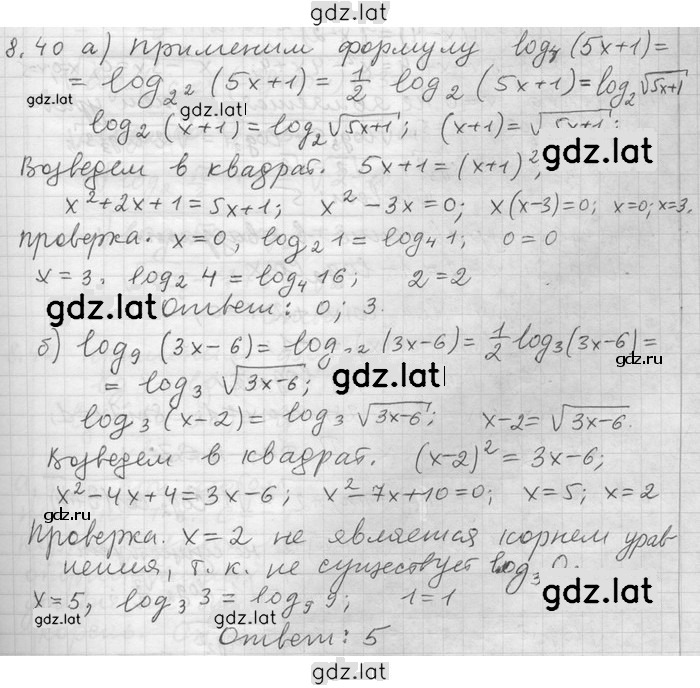 gdz.latl
8.40 а) Применим формулу log₄ (5x+1) =
= log₂² (5x+1) = 1/2 log₂ (5x+1) = log₂ √5x+1
gdz.lat
gdz.lat
log₂ (x+1) = log₂ √5x+1; (x+1) = √5x+1;
gdz.lat
Возведем в квадрат. 5x+1 = (x+1)²;
x²+2x+1 = 5x+1; x² - 3x = 0; x(x-3) = 0; x=0; x=3.
Проверка. x=0, log₂ 1 = log₄ 1; 0=0
x=3. log₂ 4 = log₄ 16; 2=2
gdz.lat
Ответ: 0; 3.
б) log₉ (3x-6) = log₃² (3x-6) = 1/2 log₃ (3x-6) =
gdz.ru
= log₃ √3x-6;
gdz.latl
log₃ (x-2) = log₃ √3x-6; x-2 = √3x-6.
Возведем в квадрат. (x-2)² = 3x-6;
x²-4x+4 = 3x-6; x²-7x+10 = 0; x=5; x=2
gdz.ru
Проверка. x=2 не является корнем урав-
нения, т.к. не существует log₃ 0.
gdz.lat
x=5, log₃ 3 = log₉ 9; 1=1
gdz.lat
gdz.lat
Ответ: 5
gdz.lat